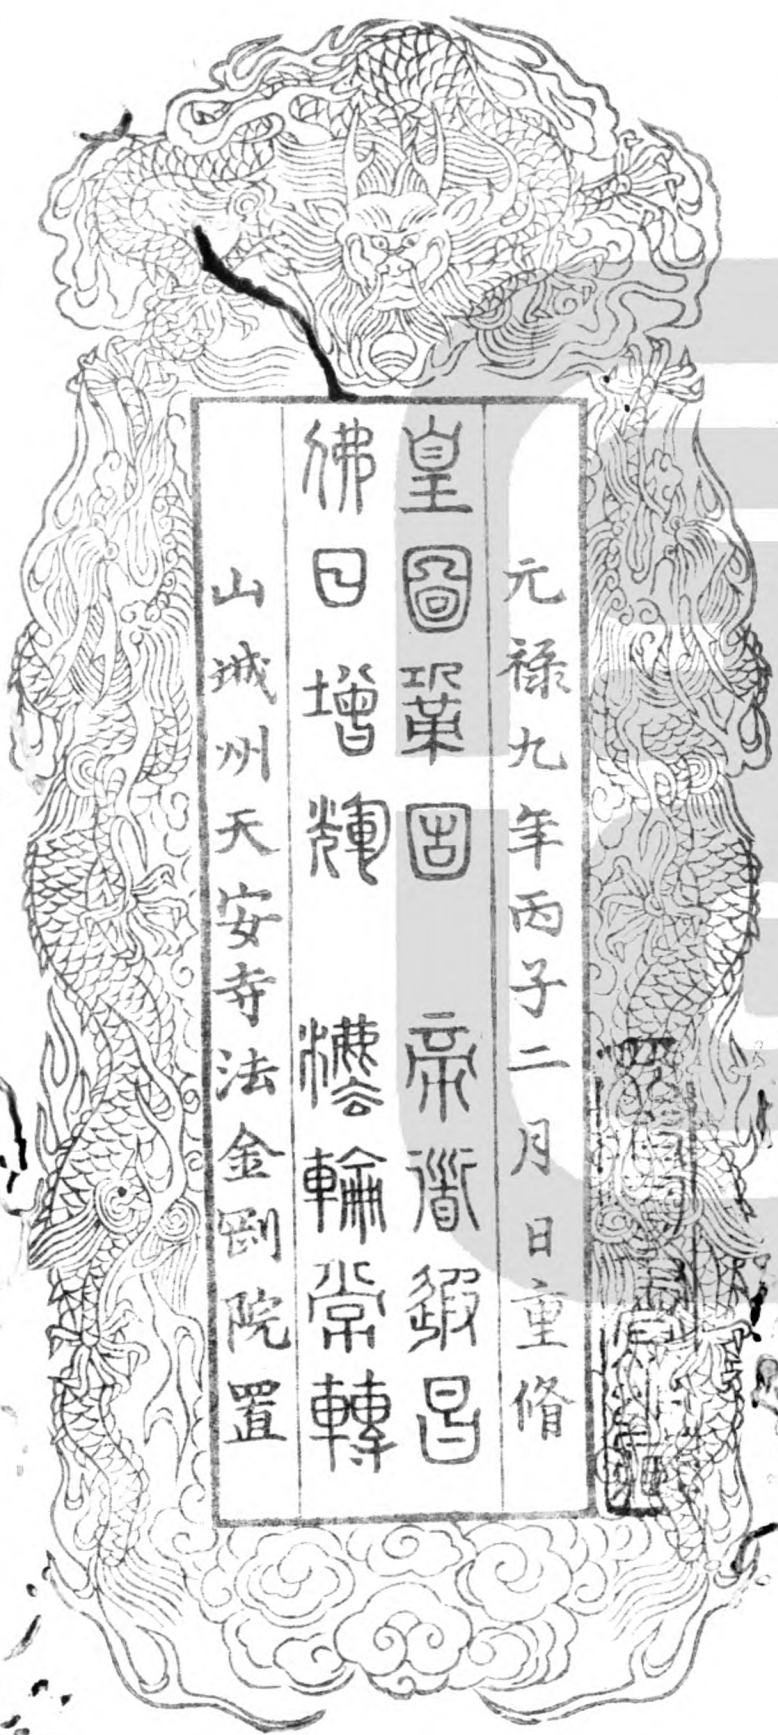 元禄九年丙子二月日重脩
皇圖鞏固　帝道遐昌
佛日増輝　灋輪常轉
山城州天安寺法金剛院置